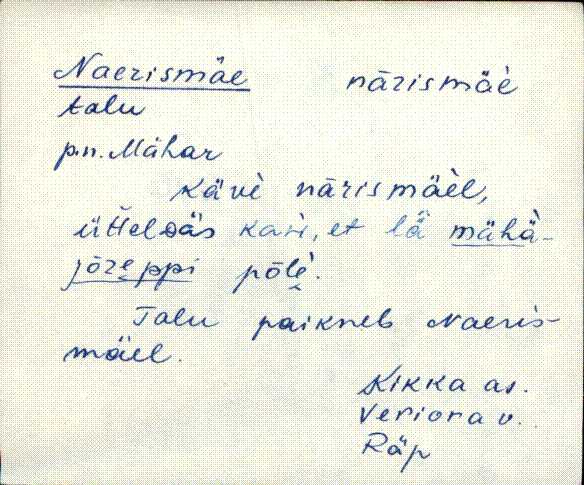 Naerismäe nārismäè
talu
p.n. Mähar
Kävè nārismäèl,
üttelväs kasì, et lä mähà-
jōzeppi pōlè.
Talu paikneb Naeris-
mäel.
Kikka as.
Veriora v.
Räp